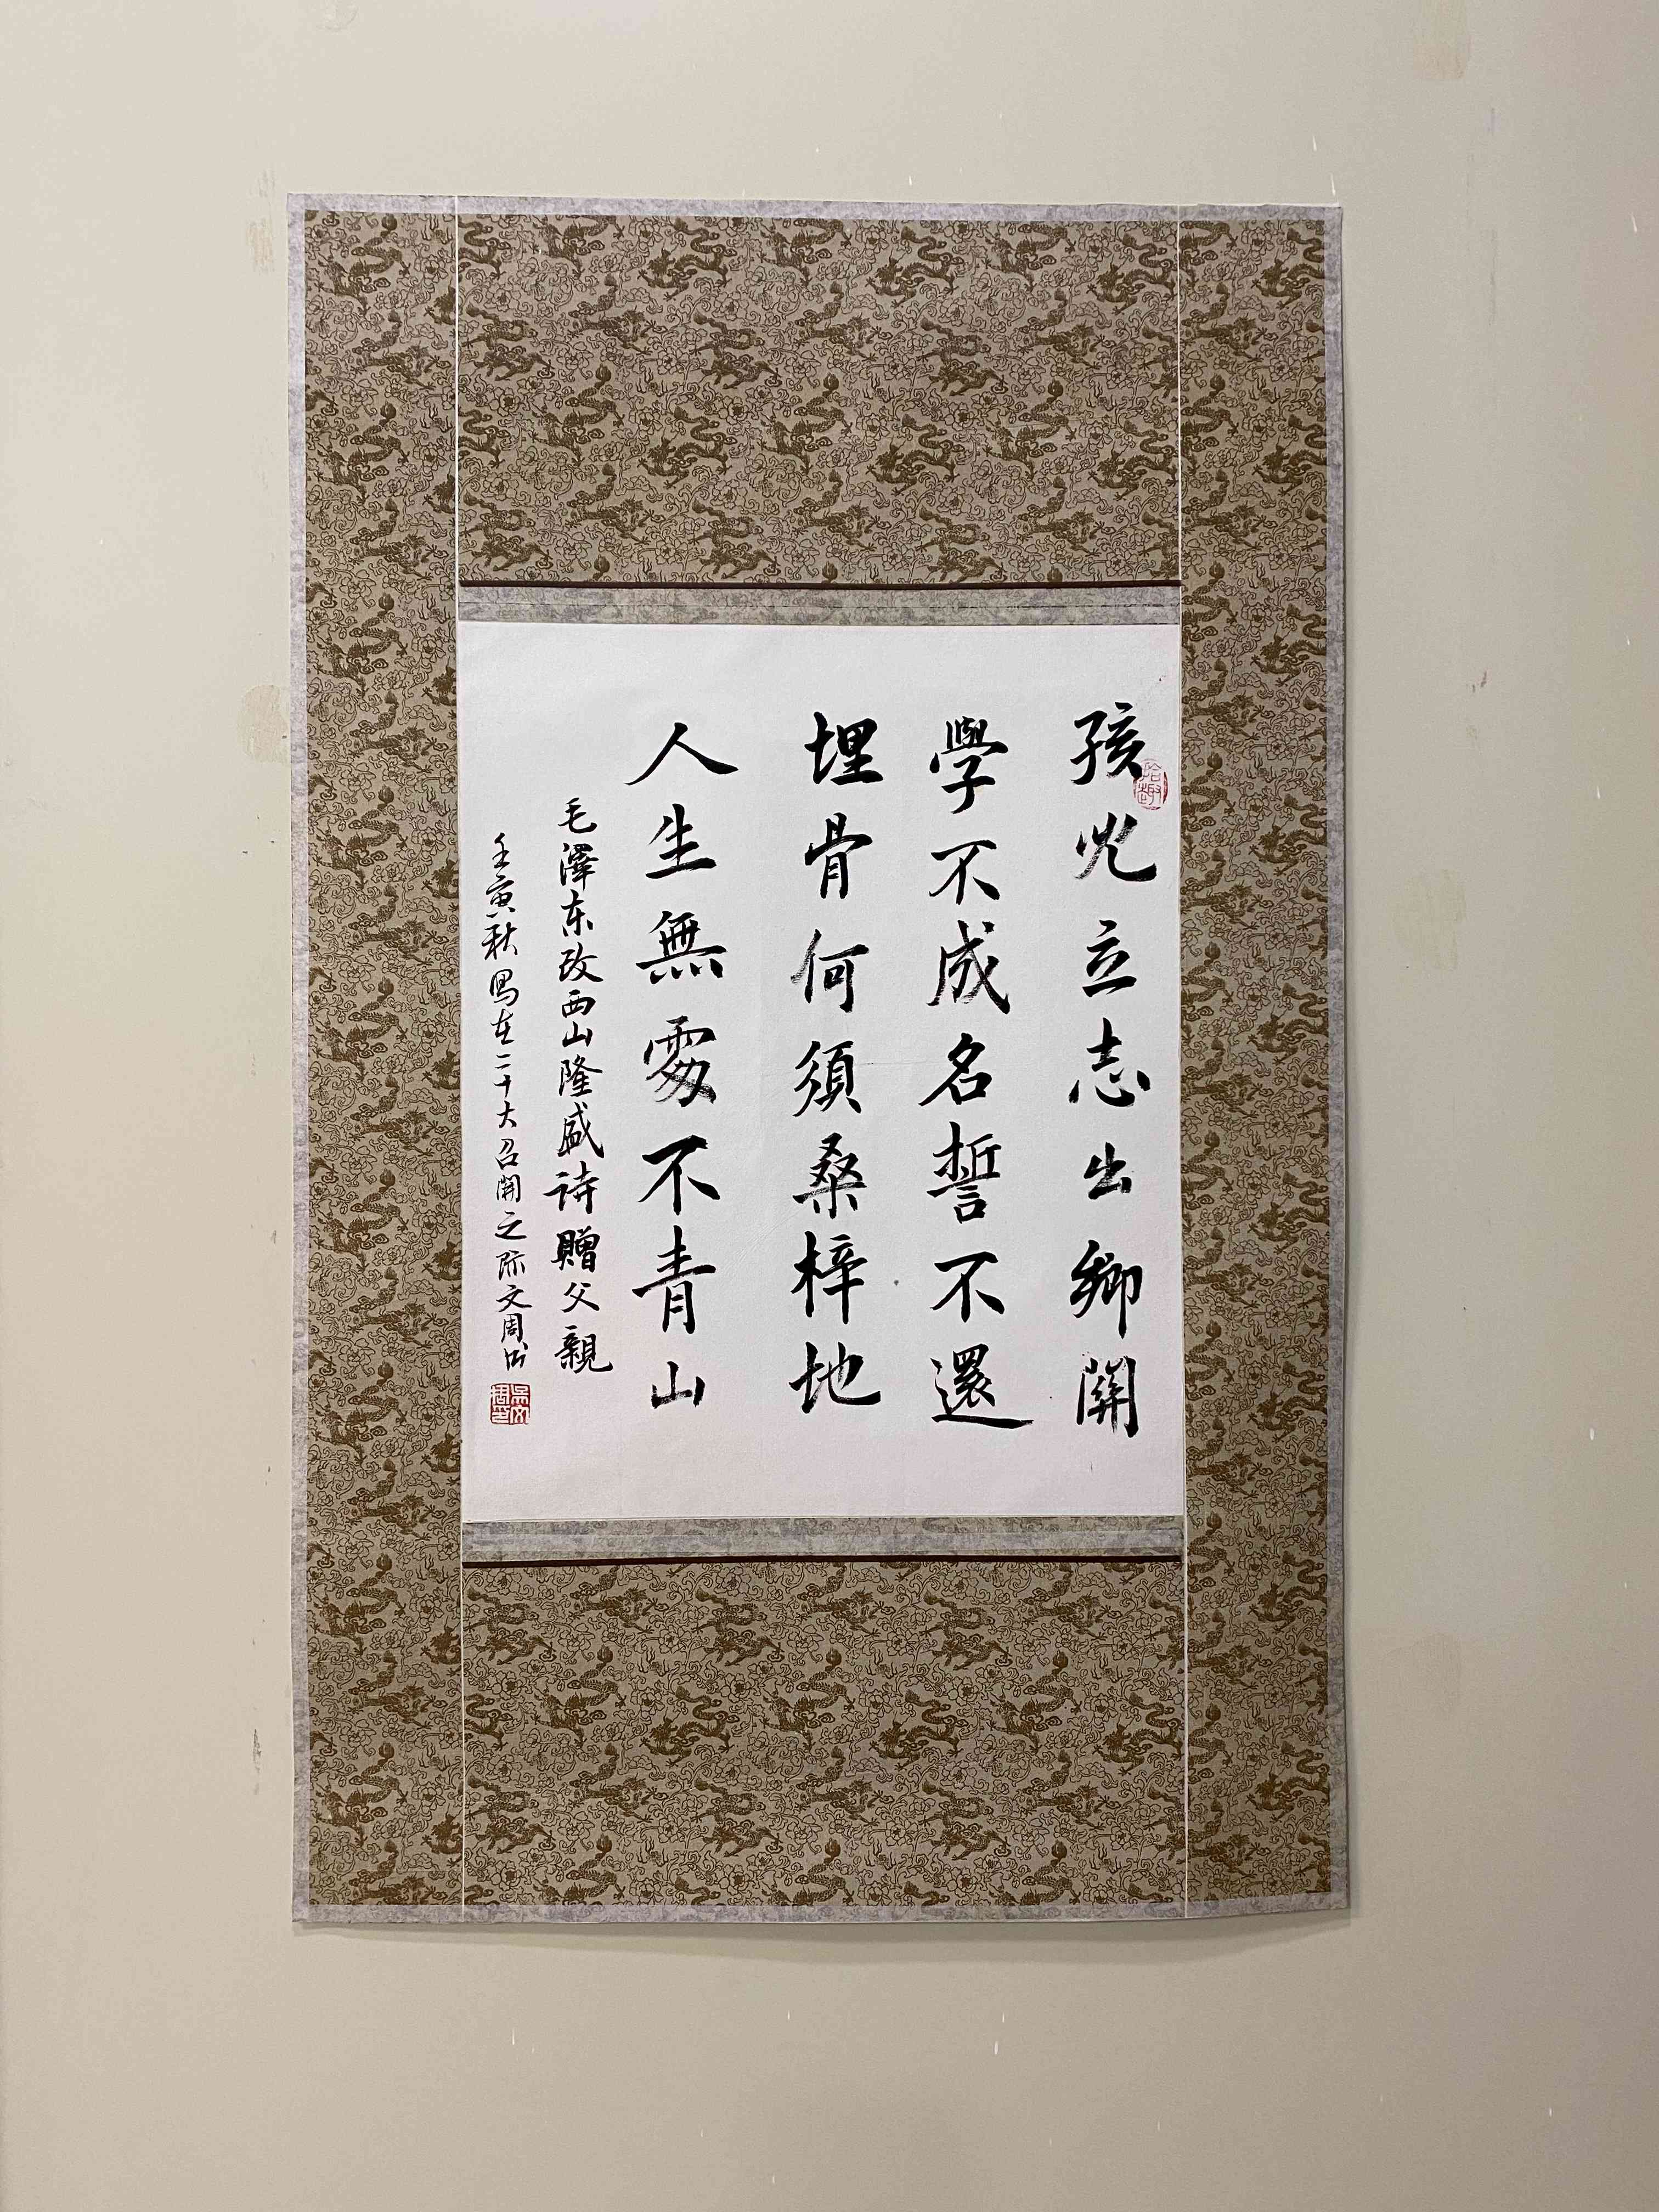 孩兒立志出鄉關
學不成名誓不還
埋骨何須桑梓地
人生無處不青山
毛澤东改西山隆盛诗贈父親
壬寅秋寫在二十大召開之际文周书
拾趣
吴文周印